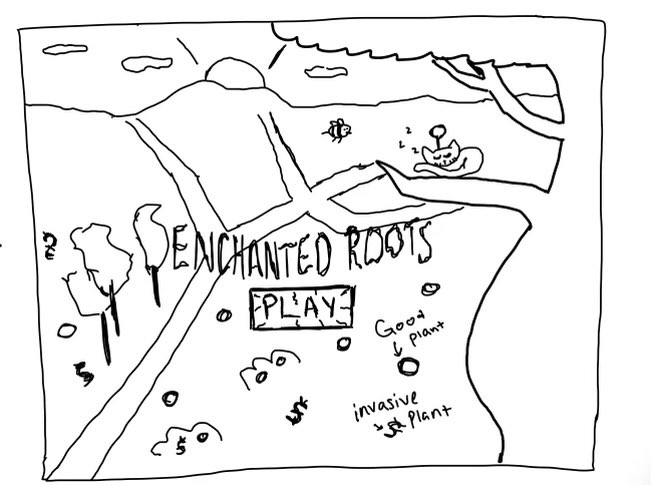 z
z z
ENCHANTED ROOTS
PLAY
Good
plant
invasive
plant